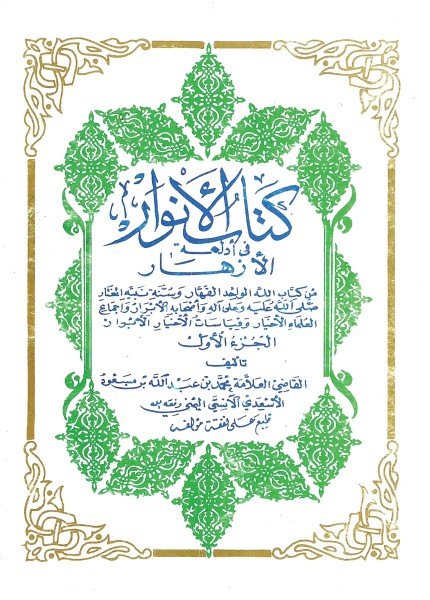 كتاب الأنوار
في أدلة
الأزهار
من كتاب الله الواحد القهار وسنة نبيه المختار
صلى الله عليه وعلى آله وأصحابه الأبرار واجماع
العلماء الأخيار وقياسات الأخيار
الجزء الأول
تأليف
القاضي العلامة محمد بن عبد الله بن مسعود
اليمني وفقه الله
طبع على نفقة مؤلفه